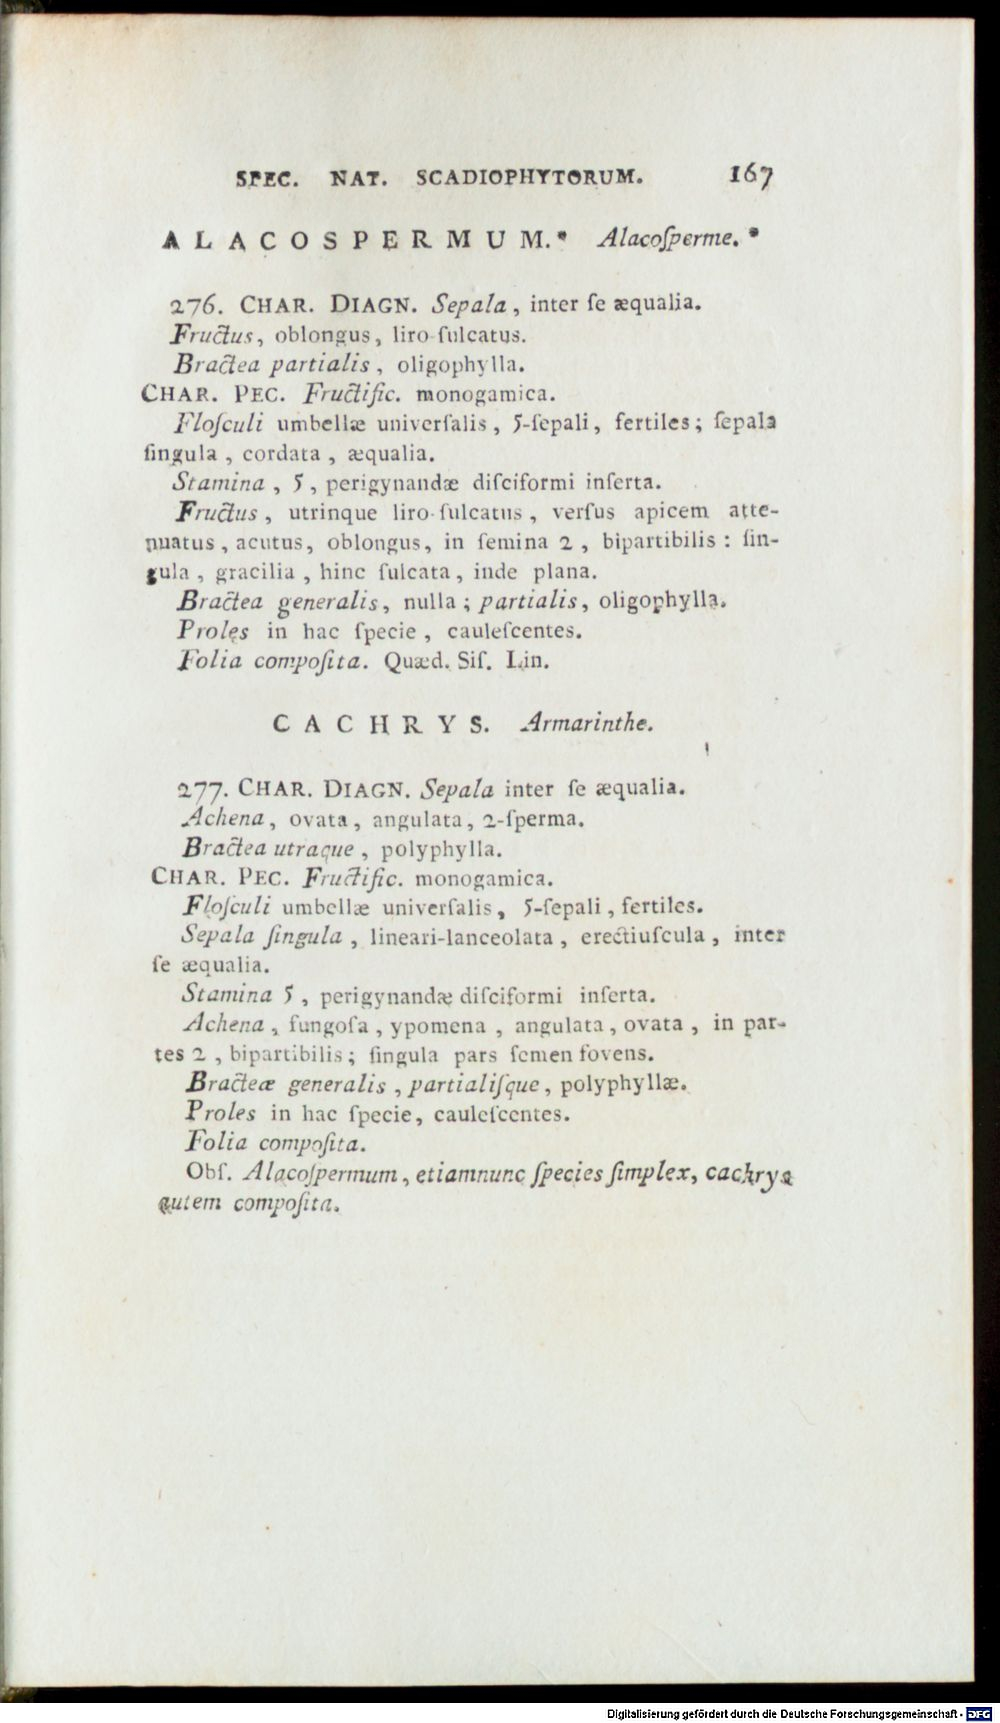 SPEC. NAT. SCADIOPHYTORUM. 167
ALACOSPERMUM.* Alacoſperme.*
276. CHAR. DIAGN. Sepala, inter ſe æqualia.
Fructus, oblongus, liro-ſulcatus.
Bractea partialis, oligophylla.
CHAR. PEC. Fructific. monogamica.
Floſculi umbellæ univerſalis, 5-ſepali, fertiles; ſepala
ſingula, cordata, æqualia.
Stamina, 5, perigynandæ diſciformi inſerta.
Fructus, utrinque liro-ſulcatus, verſus apicem atte-
nuatus, acutus, oblongus, in ſemina 2, bipartibilis: ſin-
gula, gracilia, hinc ſulcata, inde plana.
Bractea generalis, nulla; partialis, oligophylla.
Proles in hac ſpecie, cauleſcentes.
Folia compoſita. Quæd. Siſ. Lin.
CACHRYS. Armarinthe.
277. CHAR. DIAGN. Sepala inter ſe æqualia.
Achena, ovata, angulata, 2-ſperma.
Bractea utraque, polyphylla.
CHAR. PEC. Fructific. monogamica.
Floſculi umbellæ univerſalis, 5-ſepali, fertiles.
Sepala ſingula, lineari-lanceolata, erectiuſcula, inter
ſe æqualia.
Stamina 5, perigynandæ diſciformi inſerta.
Achena, fungoſa, ypomena, angulata, ovata, in par-
tes 2, bipartibilis; ſingula pars ſemen fovens.
Bracteæ generalis, partialiſque, polyphyllæ.
Proles in hac ſpecie, cauleſcentes.
Folia compoſita.
Obſ. Alacoſpermum, etiamnunc ſpecies ſimplex, cachrys
autem compoſita.
Digitalisierung gefördert durch die Deutsche Forschungsgemeinschaft - DFG